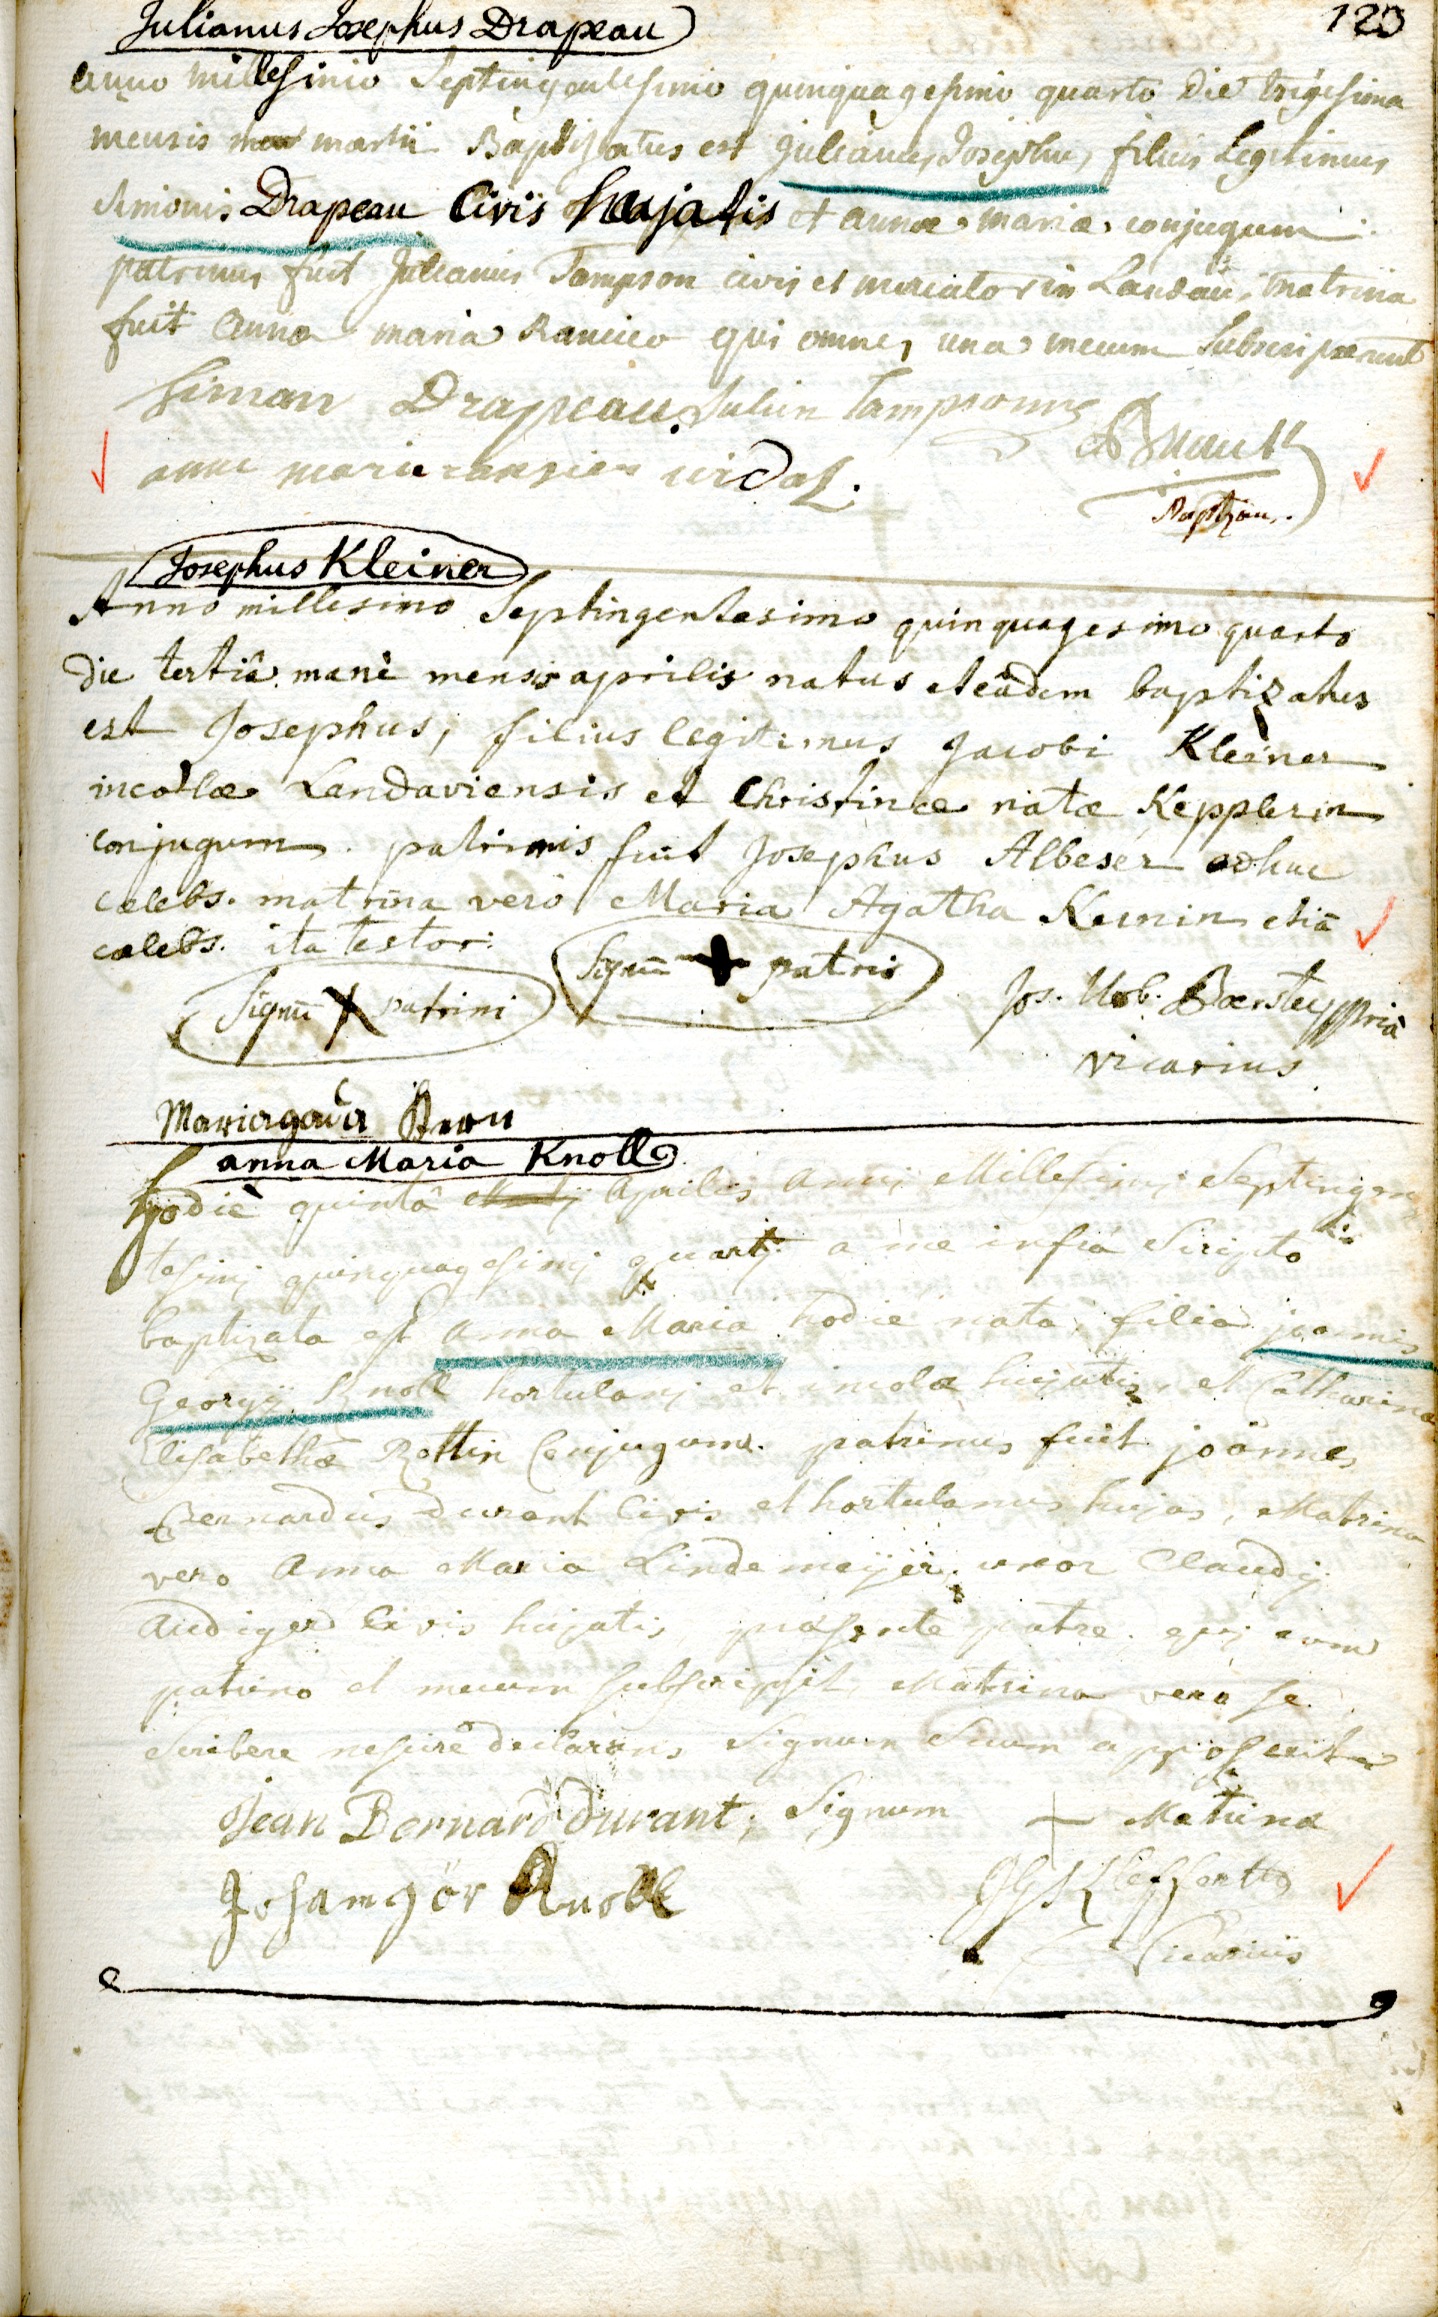 Julianus Josephus Drapeau
123
anno millesimo Septingentesimo quinquagesimo quarto Die trigesima
mensis martii Baptizatus est Julianus Josephus filius Legitimus
Simonis Drapeau Civis hujatis et annæ mariæ conjugum
patrinus fuit Julianus Tampson civis et mercator in Landau, matrina
fuit anna maria qui omnes una mecum Subscripserunt
Siman Drapeau Julien Tampsonne
anne marie
Josephus Kleiner
Anno millesimo Septingentesimo quinquagesimo quarto
die tertiâ manè mensis aprilis natus et eâdem baptizatus
est Josephus, filius legitimus Jacobi Kleiner
incolæ Landaviensis et Christinæ natæ Kepplerin
conjugum. patrinus fuit Josephus Albeser adhuc
cælebs. matrina verò Maria Agatha Kernin etiã
cælebs. ita testor:
Signũ + patris
Signũ + patrini
Jos. Udb. Boerstey ppriâ
vicarius
Mariagada Kern
anna Maria Knoll
Hodiè quintâ Aprilis Anni Millesimi Septingen
tesimi quinquagesimi quarti a me infrà Scripto
baptizata est Anna Maria hodie nata, filia joannis
Georgij Knoll hortulanj et incolæ hujatis, et Catharinæ
Elisabethæ Rottin Conjugum. patrinus fuit joännes
Bernardus Durant Civis et hortulanus hujas, Matrina
vero Anna Maria Lindemeijer uxor Claudij
Audiger Civis hujatis, præsente patre qui cum
patrino et mecum subscripsit, Matrina verò se
Scribere nescire declarans Signum Suum apposuit
Jean Bernard Durant, Signum + Matrinæ
Johangör Knoll
Vicarius